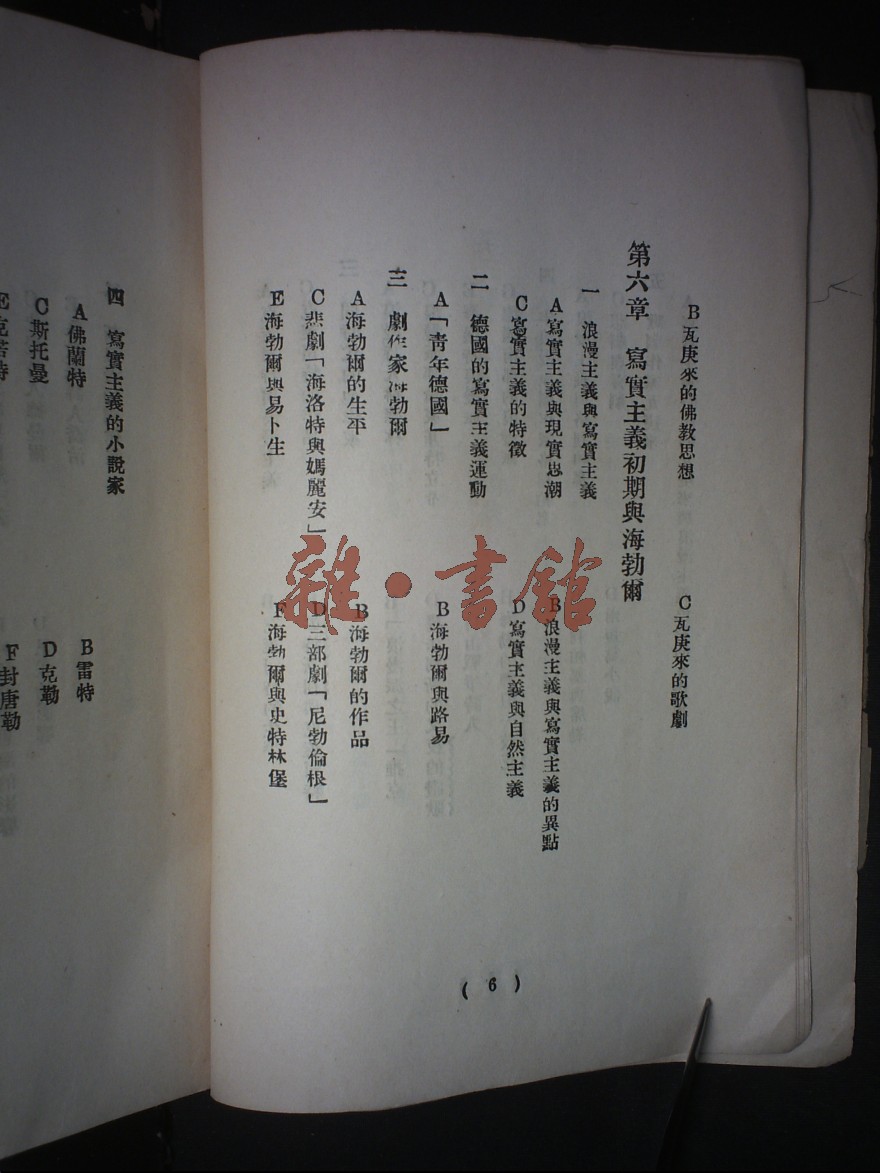 B 瓦庚來的佛教思想
C 瓦庚來的歌劇
第六章 寫實主義初期與海勃爾
一 浪漫主義與寫實主義
A 寫實主義與現實思潮
B 浪漫主義與寫實主義的異點
C 寫實主義的特徵
D 寫實主義與自然主義
二 德國的寫實主義運動
A「青年德國」
B 海勃爾與路易
三 劇作家海勃爾
A 海勃爾的生平
B 海勃爾的作品
C 悲劇「海洛特與媽麗安」
D 三部劇「尼勃倫根」
E 海勃爾與易卜生
F 海勃爾與史特林堡
(6)
四 寫實主義的小說家
A 佛蘭特
B 雷特
C 斯托曼
D 克勒
E 克若特
F 封唐勒
雜·書館